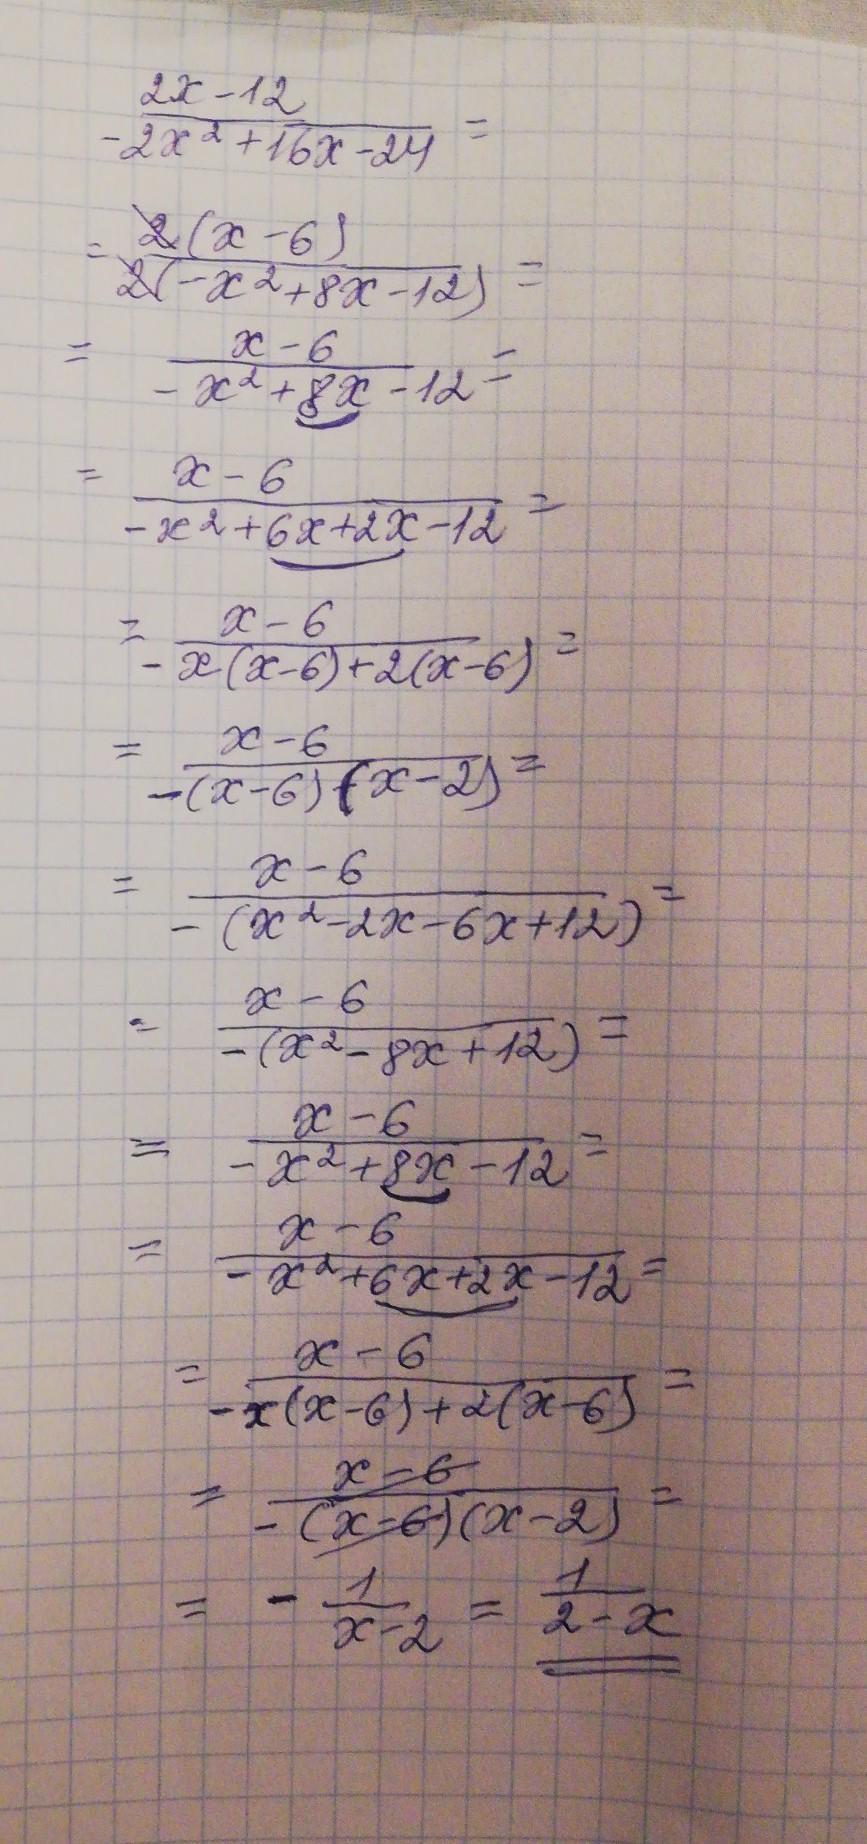 \frac{2x-12}{-2x^2+16x-24} =
= \frac{2(x-6)}{2(-x^2+8x-12)} =
= \frac{x-6}{-x^2+8x-12} =
= \frac{x-6}{-x^2+6x+2x-12} =
= \frac{x-6}{-x(x-6)+2(x-6)} =
= \frac{x-6}{-(x-6)(x-2)} =
= \frac{x-6}{-(x^2-2x-6x+12)} =
= \frac{x-6}{-(x^2-8x+12)} =
= \frac{x-6}{-x^2+8x-12} =
= \frac{x-6}{-x^2+6x+2x-12} =
= \frac{x-6}{-x(x-6)+2(x-6)} =
= \frac{x-6}{-(x-6)(x-2)} =
= -\frac{1}{x-2} = \frac{1}{2-x}